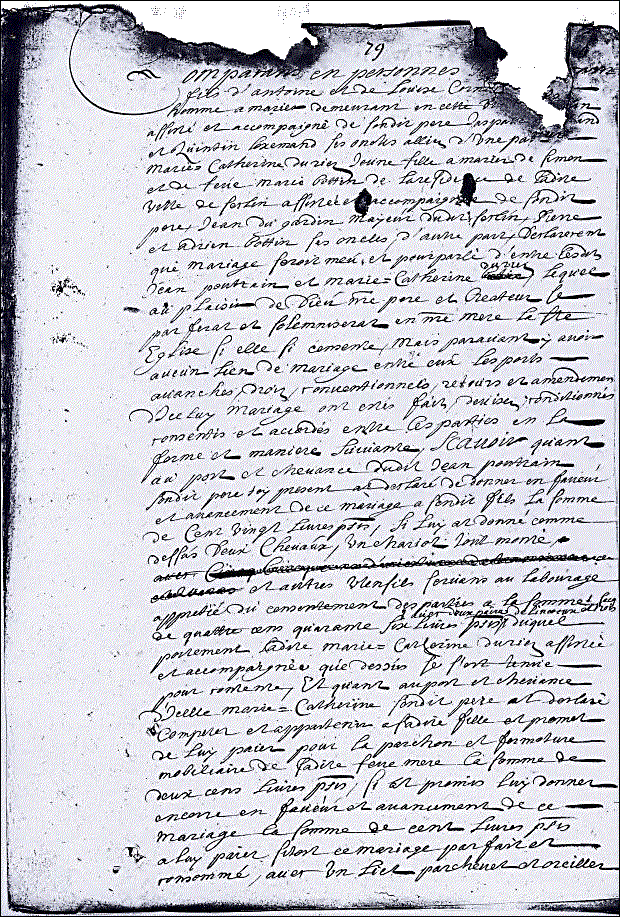 79
Comparans en personnes
fils d'antoine et de Louise
homme a marier demeurant en cette
assisté et accompaigné de sondit pere
et Quentin Lixemand ses oncles allier d'Une part
Maries Catherine durier Jeune fille a marier de simon
et de feue Marie bottin de La residence de Ladite
Ville de sorlin assistée et accompaignée de sondit
pere, Jean du gardin Mayeur dudit sorlin, Pierre
et adrien bottin ses oncles, d'autre part, Declarerent
que mariage seroit meu, et pourparlé d'entre Ledit
Jean pouttrain et marie=Catherine durier, lequel
au plaisir de Dieu nre pere et Createur se
parferat et solemniserat en nre mere la Ste
Eglise si elle si consente, Mais parauant y auoir
aucun Lien de mariage entre eux Les ports
auanches, dons, conventionnels, retours et amendemens
D'Iceluy Mariage ont etés fait, deuisés, conditionnés
consentis et accordés entre Les parties en La
forme et maniere suiuante, Scauoir quant
au port et cheuance dudit Jean pouttrain
sondit pere Icy present at declaré de donner en faueur
et auancement de ce mariage a sondit fils La somme
de Cent Vingt Liures psis, Si Luy at donné comme
dessus Deux Cheuaux, Un chariot tout monté,
et autres Utensils seruans au Labourage
apprétié du consentement des parties a La somme
auec deux paires de
de quattre cens quarante six Liures psis duquel
portement Ladite marie=Catherine durier assistée
et accompaignée que dessus se s'ont tenue
pour contente, Et quant au port et cheuance
D'Icelle marie=Catherine sondit pere at declaré
Competer et appartenir a sadite fille et promet
de Luy paier pour La parchon et formoture
mobiliaire de sadite feue mere La somme de
deux cens Liures psis, si at promis Luy donner
encorre en faueur et auancement de ce
mariage La somme de cent Liures psis
a Luy paier sitost ce mariage parfait et
consommé, auec Un Lict parcheuet et oreiller